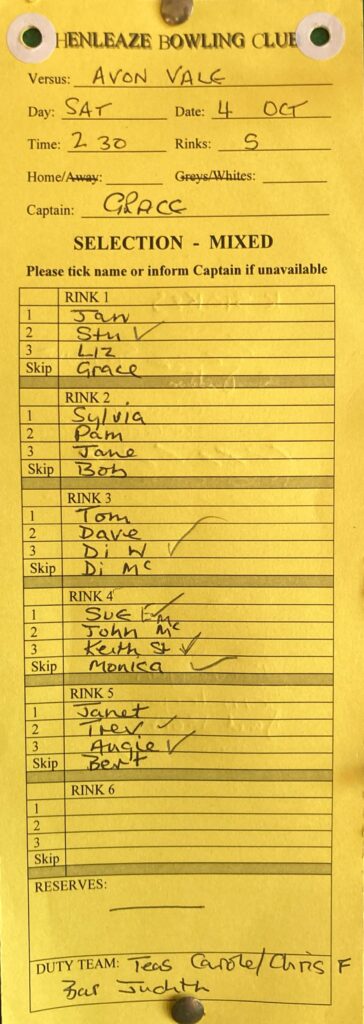 HENLEAZE BOWLING CLUB
Versus: AVON VALE
Day: SAT Date: 4 OCT
Time: 2 30 Rinks: 5
Home/Away: Greys/Whites:
Captain: GRACE
SELECTION - MIXED
Please tick name or inform Captain if unavailable
RINK 1
1 Jan
2 Stu ✓
3 Liz
Skip Grace
RINK 2
1 Sylvia
2 Pam
3 Jane
Skip Bob
RINK 3
1 Tom
2 Dave
3 Di W ✓
Skip Di Mc
RINK 4
1 Sue E ✓
2 John Mc
3 Keith St ✓
Skip Monica ✓
RINK 5
1 Janet
2 Trev ✓
3 Angie ✓
Skip Bert
RINK 6
1
2
3
Skip
RESERVES:
DUTY TEAM: Teas Carole/Chris F
Bar Judith